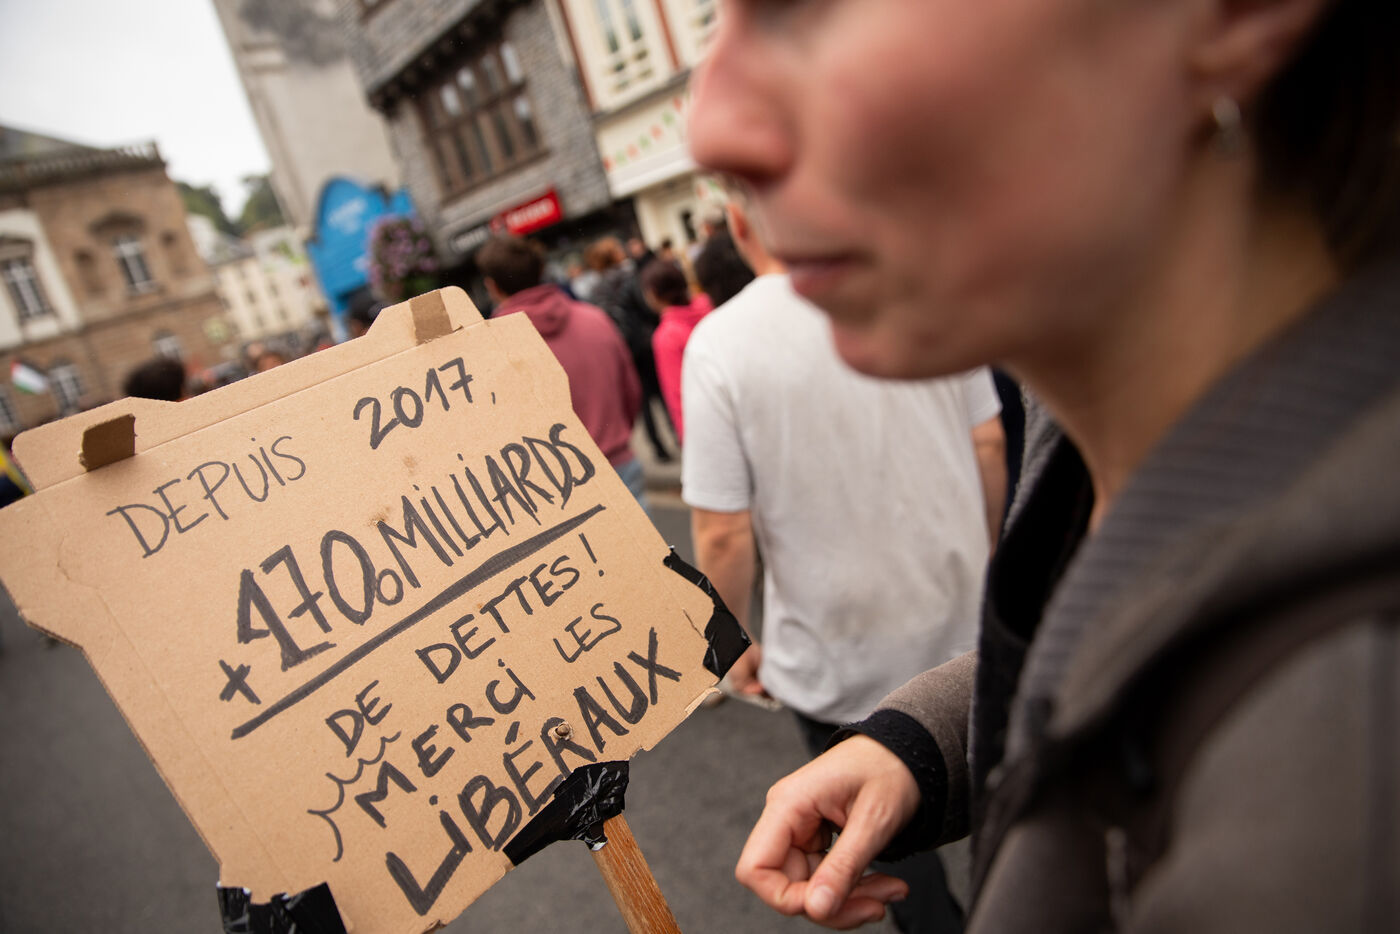 DEPUIS 2017,
+170.MILLIARDS
DE DETTES!
MERCI LES
LIBÉRAUX